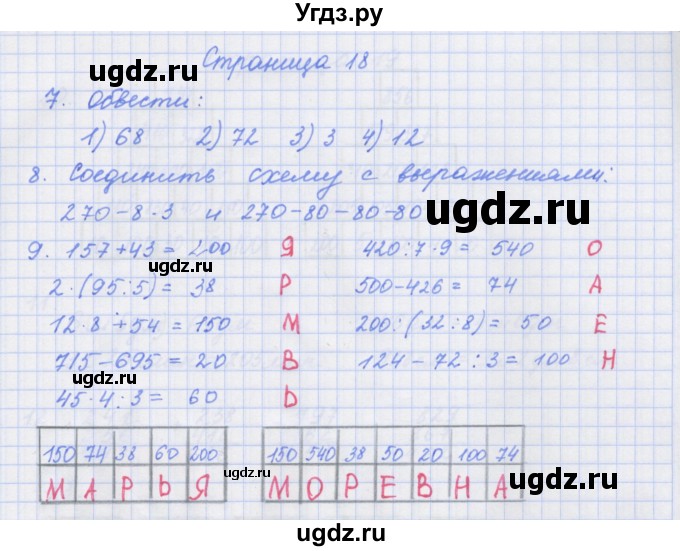 Угдз.ру
Страница 18
7. Обвести:
1) 68 2) 72 3) 3 4) 12
8. Соединить схему с выражениями:
270-8·3 и 270-80-80-80
9. 157+43=200 Я 420:7·9=540 О
2·(95:5)=38 Р 500-426=74 А
12·8+54=150 М 200:(32:8)=50 Е
715-695=20 В 124-72:3=100 Н
45·4:3=60 Ь
150 74 38 60 200 150 540 38 50 20 100 74
М А Р Ь Я М О Р Е В Н А
ugdz.ru
ugdz.ru
ugdz.ru
ugdz.ru
ugdz.ru
ugdz.ru
ugdz.ru
ugdz.ru
ugdz.ru